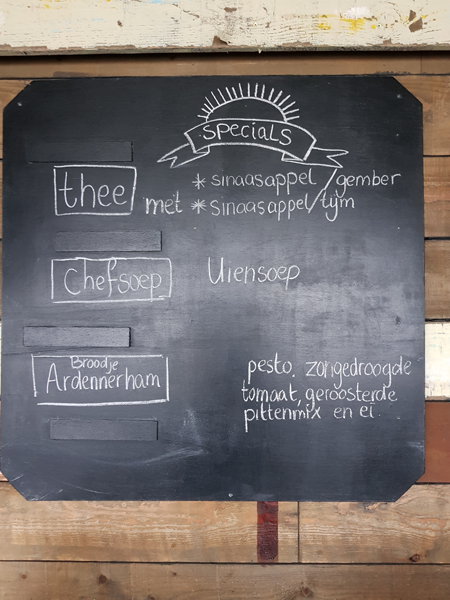 SPECIALS
thee met * sinaasappel / gember
* sinaasappel / tijm
Chefsoep Uiensoep
Broodje
Ardennerham pesto, zongedroogde
tomaat, geroosterde
pittenmix en ei.